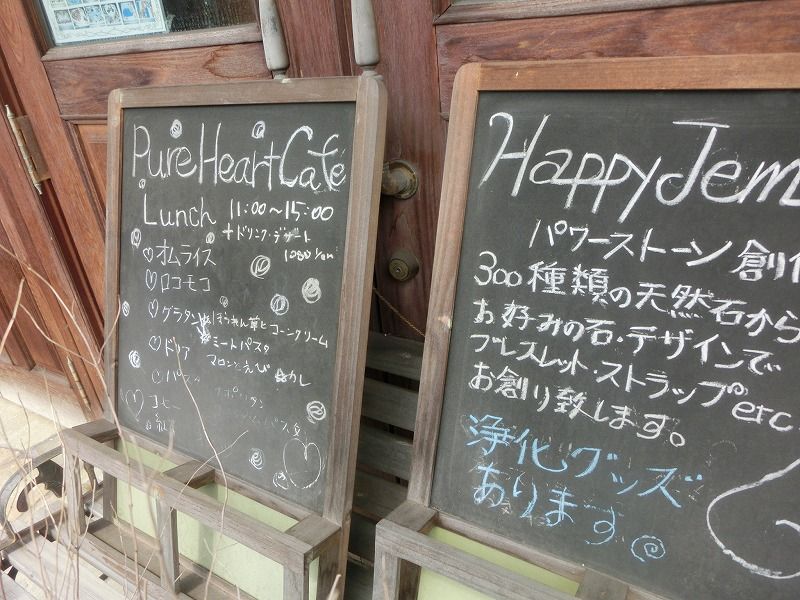 Pure Heart Cafe
Lunch 11:00～15:00
+ドリンク・デザート
1080yen
♡オムライス
♡ロコモコ
♡グラタン ほうれん草とコーンクリーム
ミートパスタ
♡ドリア マロンとえび カレー
コーヒー
Happy Jem
パワーストーン創作
300種類の天然石から
お好みの石・デザインで
ブレスレット・ストラップerc.
お創り致します。
浄化グッズ
あります